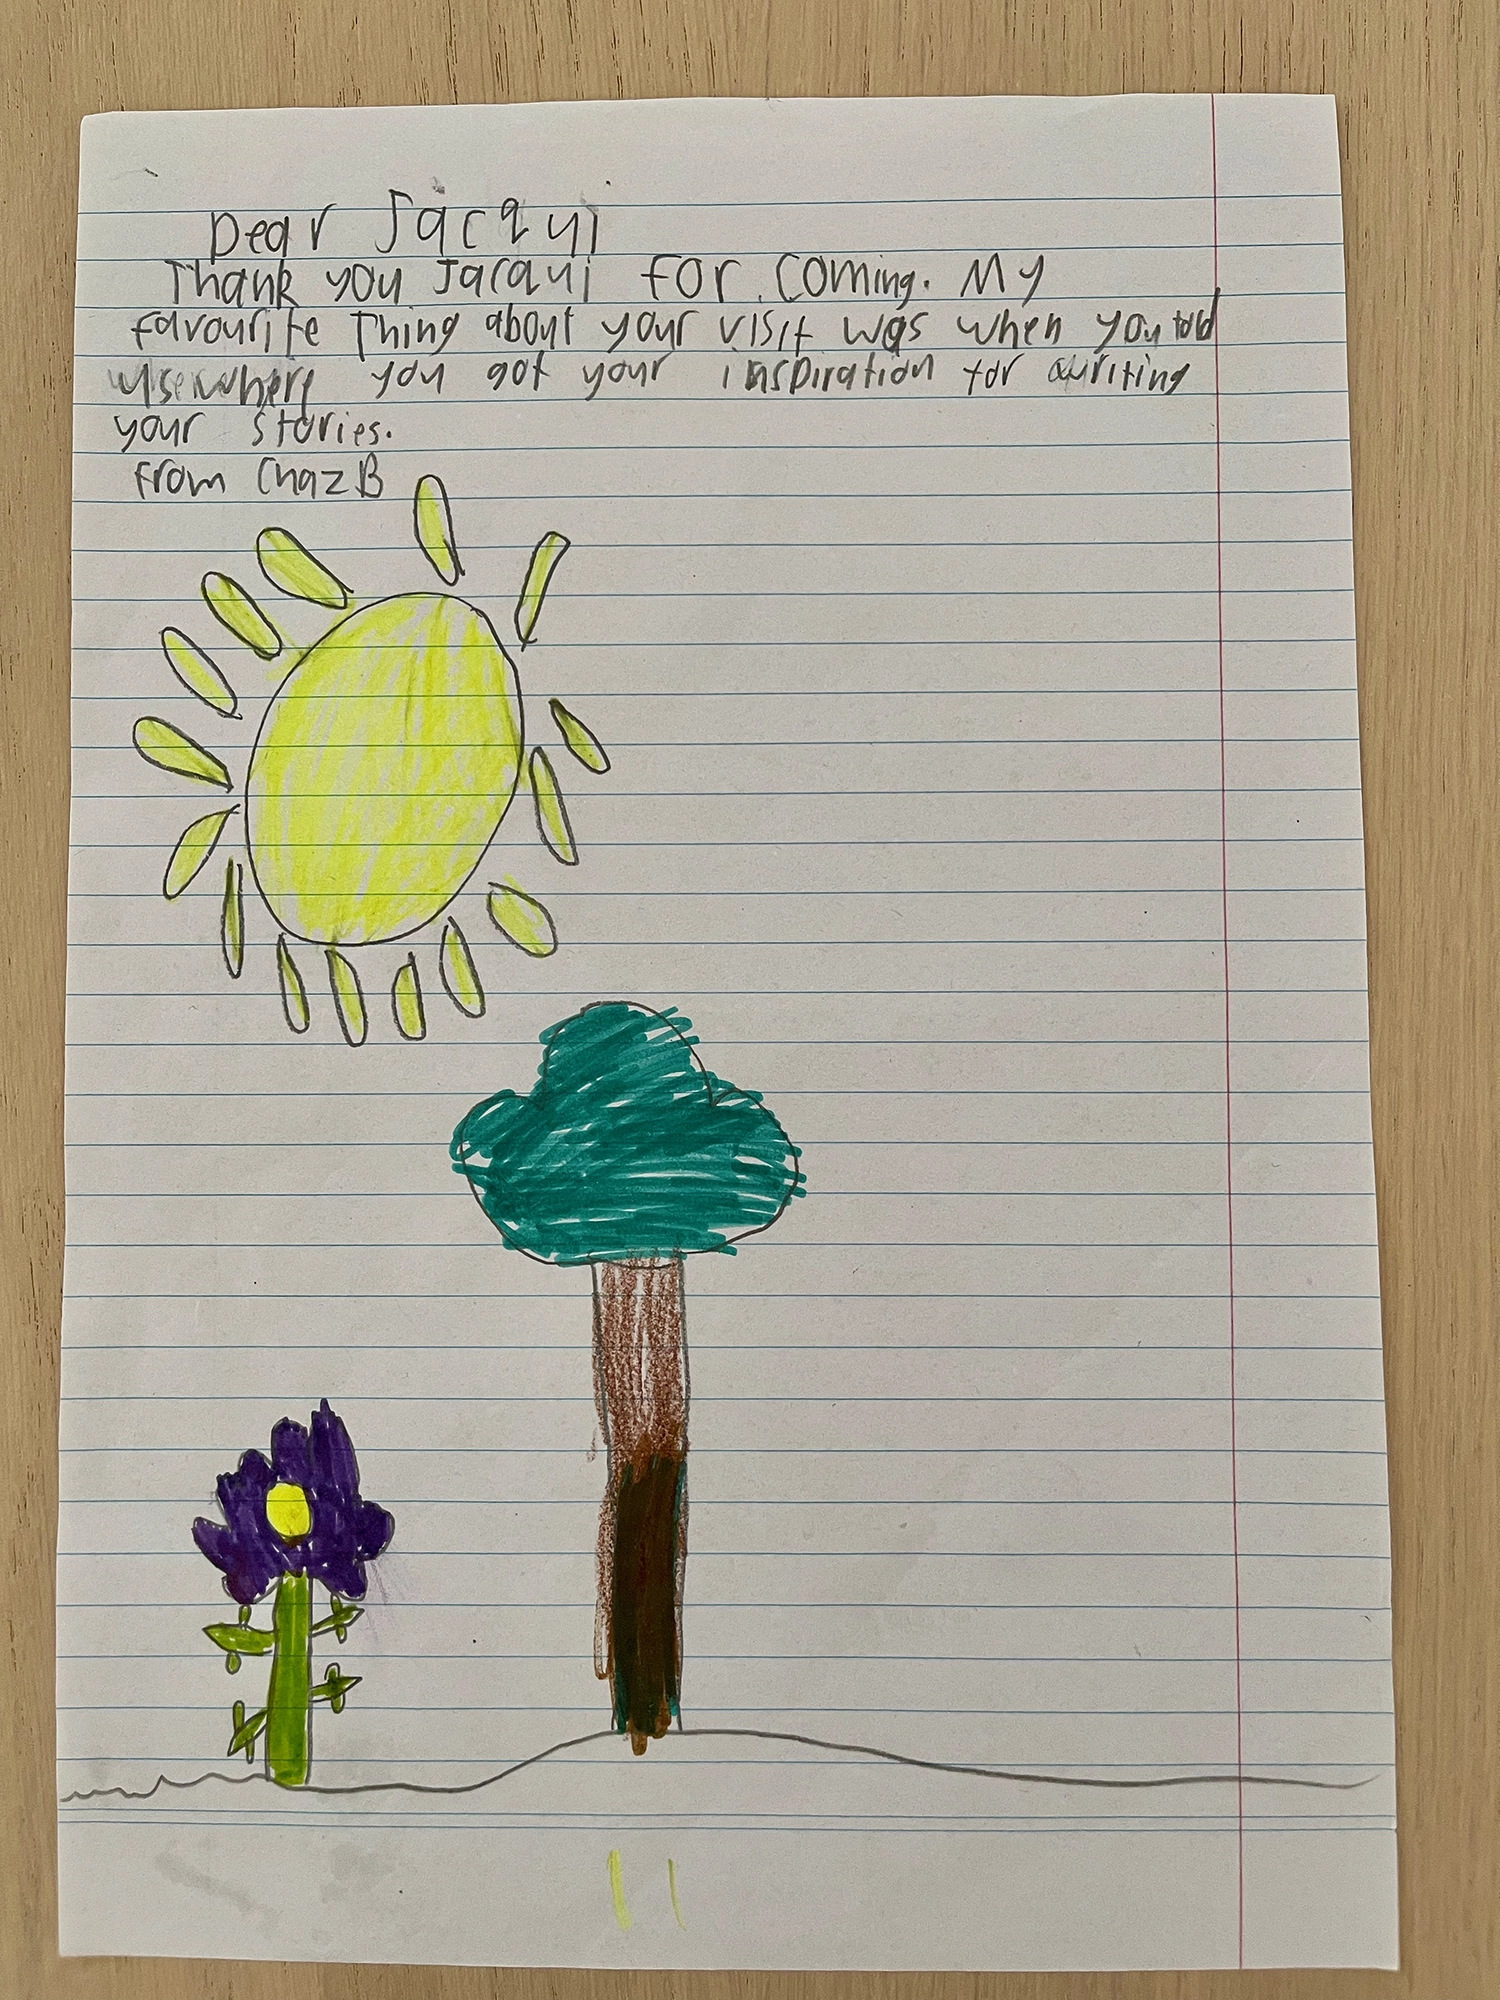 Dear Jacqui
Thank you Jacqui for coming. My
favourite Thing about your visit was when you told
us where you got your inspiration for writing
your stories.
from Chaz B